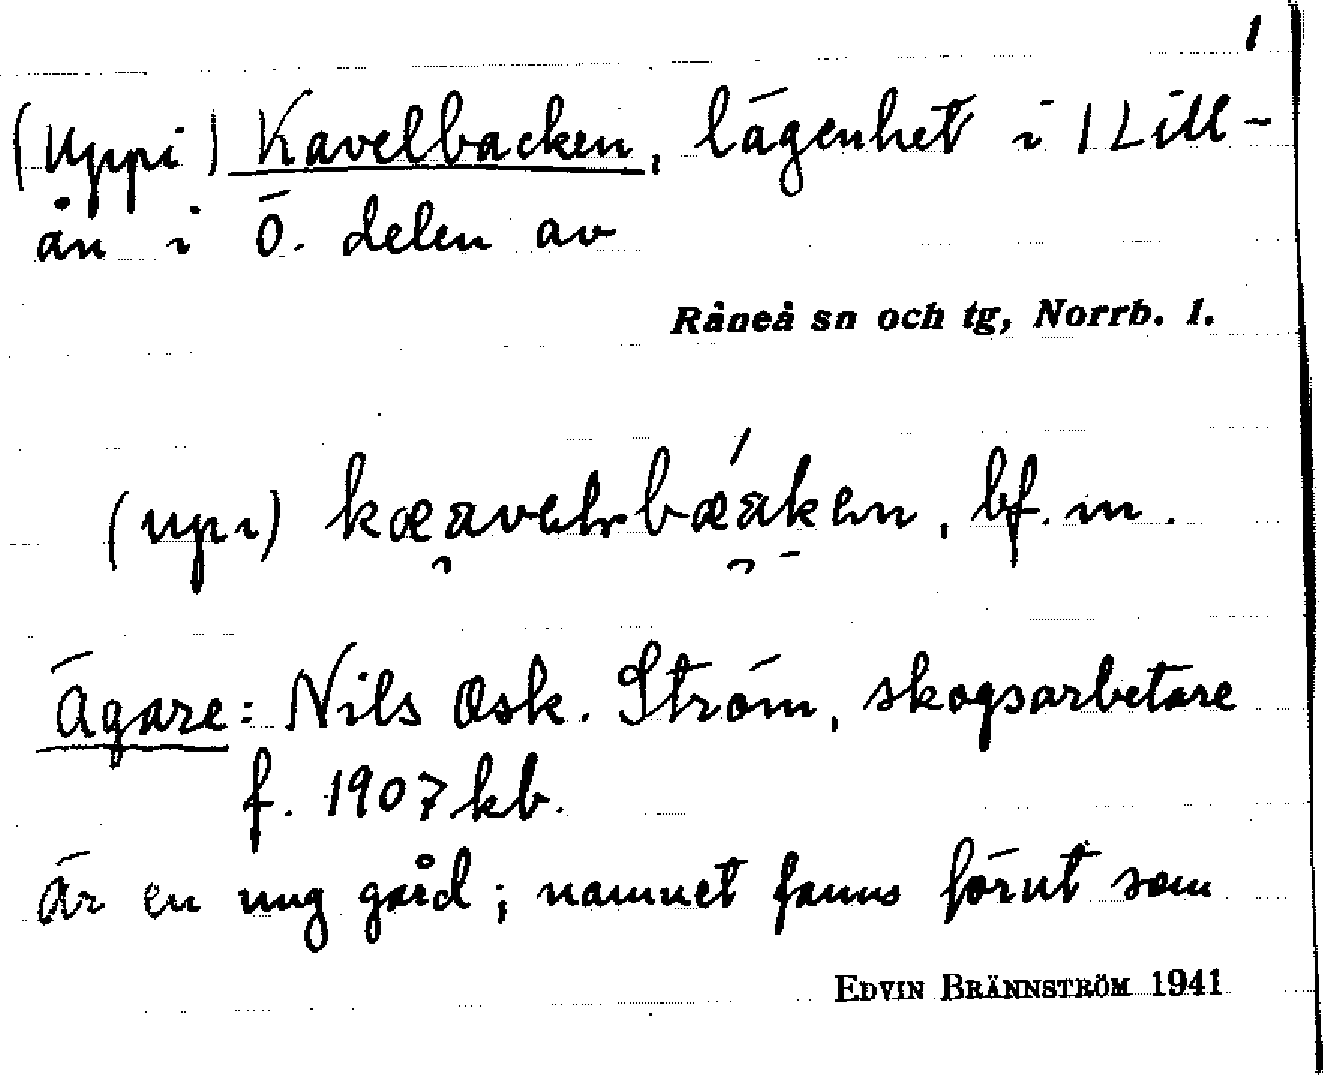 1
(Uppi) Kavelbacken, lägenhet i 1 Lill-
ån i Ö. delen av
Råneå sn och tg, Norrb. l.
(upi) bf. m.
Ägare: Nils Osk. Ström, skogsarbetare
f. 1907 kb.
Är en ung gård; namnet fanns förut som
EDVIN BRÄNNSTRÖM 1941